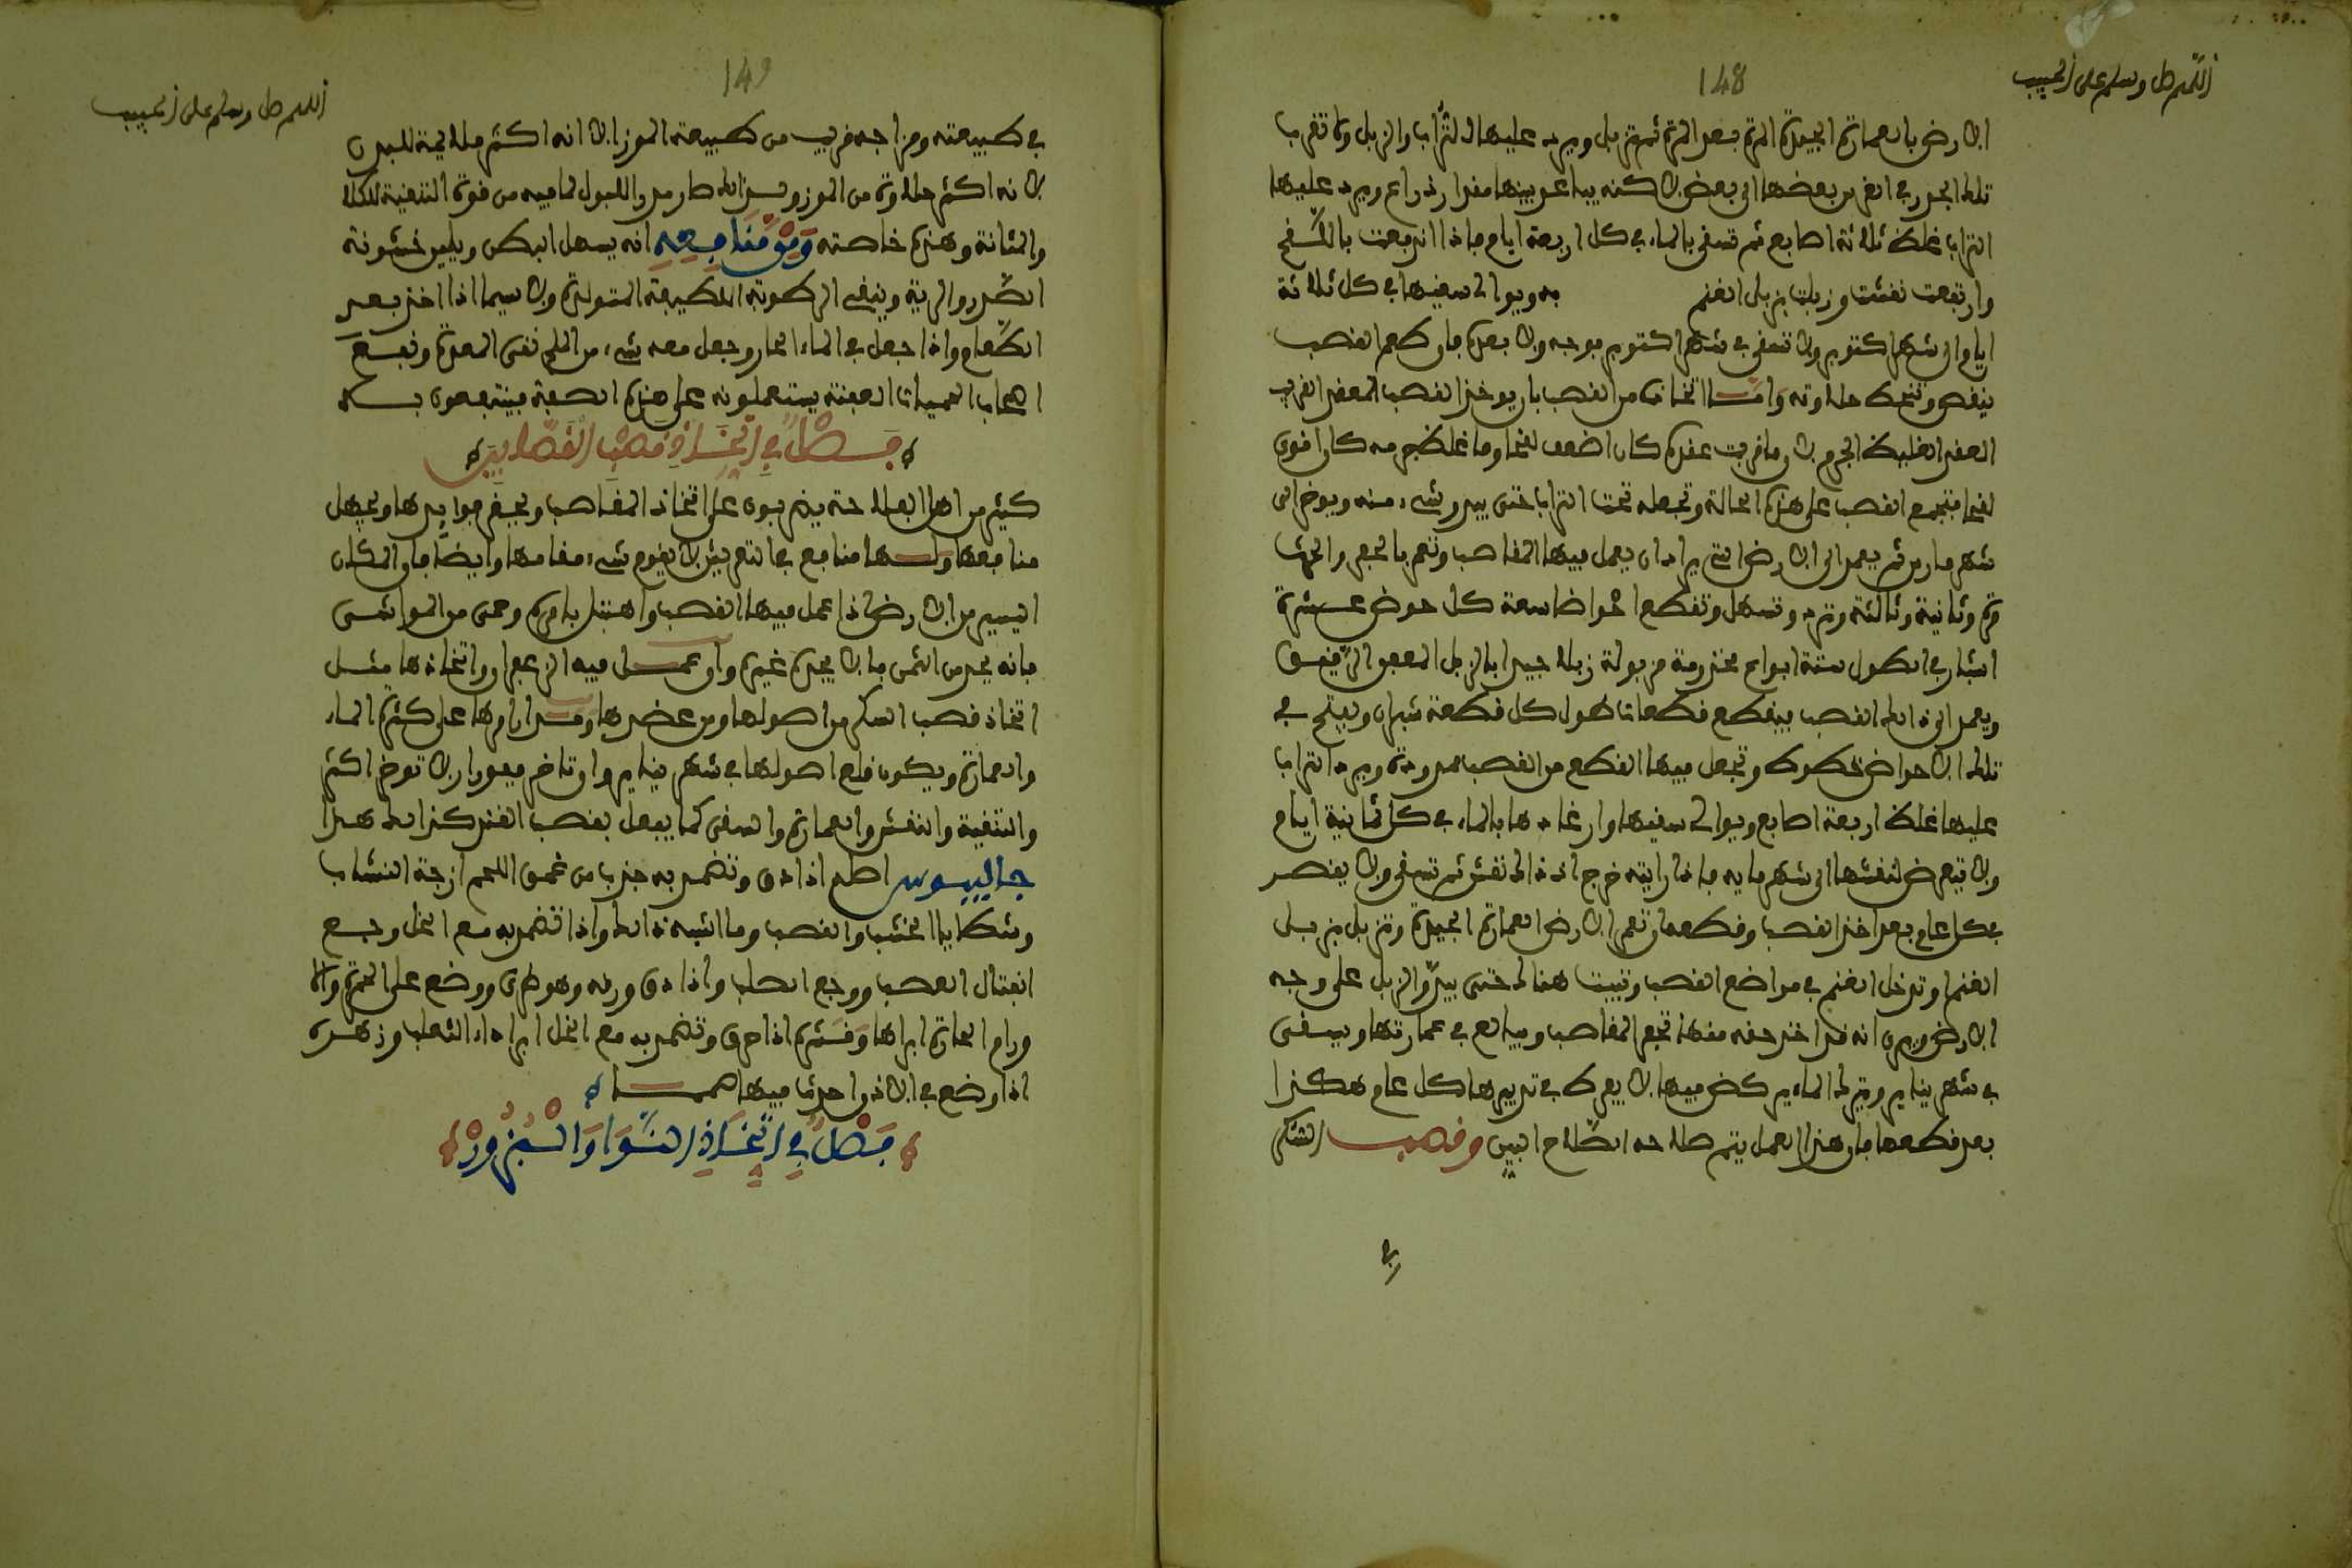 اللهم صل وسلم على الحبيب
148
الارض بالعمارة الجيدة المرة بعد المرة ثم تزبل ويرد عليها التراب والزبل
تلك الجدور في الغرس بعضها الى بعض لاكنه يباعد بينها مقدار ذراع ويرد عليها
التراب غلظ ثلاثة اصابع ثم تسقى بالماء في كل اربعة ايام فاذا اندفعت باللقح
وارتفعت نقشت وزبلت بزبل الغنم به ويوالى سقيها في كل ثلاثة
ايام الى شهر اكتوبر ولا تسقى في شهر اكتوبر بوجه ولا بعده فان طعم القصب
ينقص وتنحط حلاوته واما اتخاذه من القصب بان يوخذ القصب المعقد القريب
العقد الغليظ الجرم لان ما قربت عقده كان اضعف لقحا وما غلظ جرمه كان اقوى
لقحا فتجمع القصب على هذه الحالة وتجعله تحت التراب حتى يبدو شيء منه ويوخر الى
شهر مارس ثم يعمد الى الارض التي يراد ان يعمل فيها المقاصب وتعمر بالحفر والحرث
مرة وثانية وثالثة وترد وتسهل وتقطع احواضا سعة كل حوض عشرة
اشبار في الطول ستة ابواع مخدومة مزبولة زبلا جيدا بالزبل المعفن الرقيق
ويعمد الى ذلك القصب فيقطع قطعات طول كل قطعة شبران ويفتح في
تلك الاحواض خطوط وتجعل فيها القطع من القصب ممدودة ويرد التراب
عليها غلظ اربعة اصابع ويوالى سقيها وارغادها بالماء في كل ثمانية ايام
ولا يتعرض لنقشها الى شهر مايه فاذا رايته خرج اذ ذاك تنقش ثم تسقى ولا يقصر
بكل عام بعد اخذ القصب وقطعه ان تعمر الارض العمارة الجيدة وتزبل بزبل
الغنم او تدخل الغنم في مواضع القصب وتبيت هنالك حتى يبدو الزبل على وجه
الارض ويرى انه قد اخذ حقه منها تحفر المقاصب ويبالغ في عمارتها ويسقى
في شهر يناير ويترك الماء يركض فيها لا يفرط في تدبيرها كل عام هكذا
بعد قطعها فان هذا العمل يتم صلاحه الصلاح البين وقصب السكر
في
اللهم صل وسلم على الحبيب
149
في طبيعته ومزاجه قريب من طبيعة الموز الا انه اكثر ملايمة للبدن
لانه اكثر حلاوة من الموز ولذلك صار مدرا للبول لما فيه من قوة التنقية للكلا
والمثانة وهذه خاصته ومن منافعه انه يسهل البطن ويلين خشونة
الصدر والرية وينقي الرطوبة اللطيفة المتولدة ولا سيما اذا اخذ بعد
الطعام واذا جعل في الماء الحار وجعل معه شيء من الملح نقى المعدة ونفع
اصحاب الحميات العفنة يستعملونه على هذه الصفة فينتفعون به
فصل في اتخاذ قصب القصابين
كثير من اهل الفلاحة يذهبون على اتخاذ المقاصب ويحقر فوايدها ويجهل
منافعها ولها منافع في التعريش لا يقوم شيء مقامها وايضا فان المكان
اليسير من الارض اذا عمل فيها القصب واهتبل بامره وحمى من المواشى
فانه يجد من الثمن ما لا يجده غيره وان عمل فيه الزعفران واتخاذها مثل
اتخاذ قصب السكر من اصولها ومن عقدها ومدارا امرها على كثرة الماء
والعمارة ويكون قلع اصولها في شهر يناير وان تاخر فبوران لا توخر اكثر
والتنقية والنقش والعمارة والسقى كما يفعل بقصب القند كذلك هذا
جالينوس اصله اذا دق وتضمد به جذب من عمق اللحم ازجة النشاب
وشظايا الخشب والقصب وما اشبه ذلك واذا تضمد به مع الخل وجع
انفتال العصب ووجع الصلب واذا دق ورقه وهو طري ووضع على الحمرة والا
ورام الحارة ابراها وقشره اذا حرق وتضمد به مع الخل ابراء داء الثعلب وزهره
اذا وضع في الاذن احدث فيها صمما
فصل في اتخاذ النوا والبزور